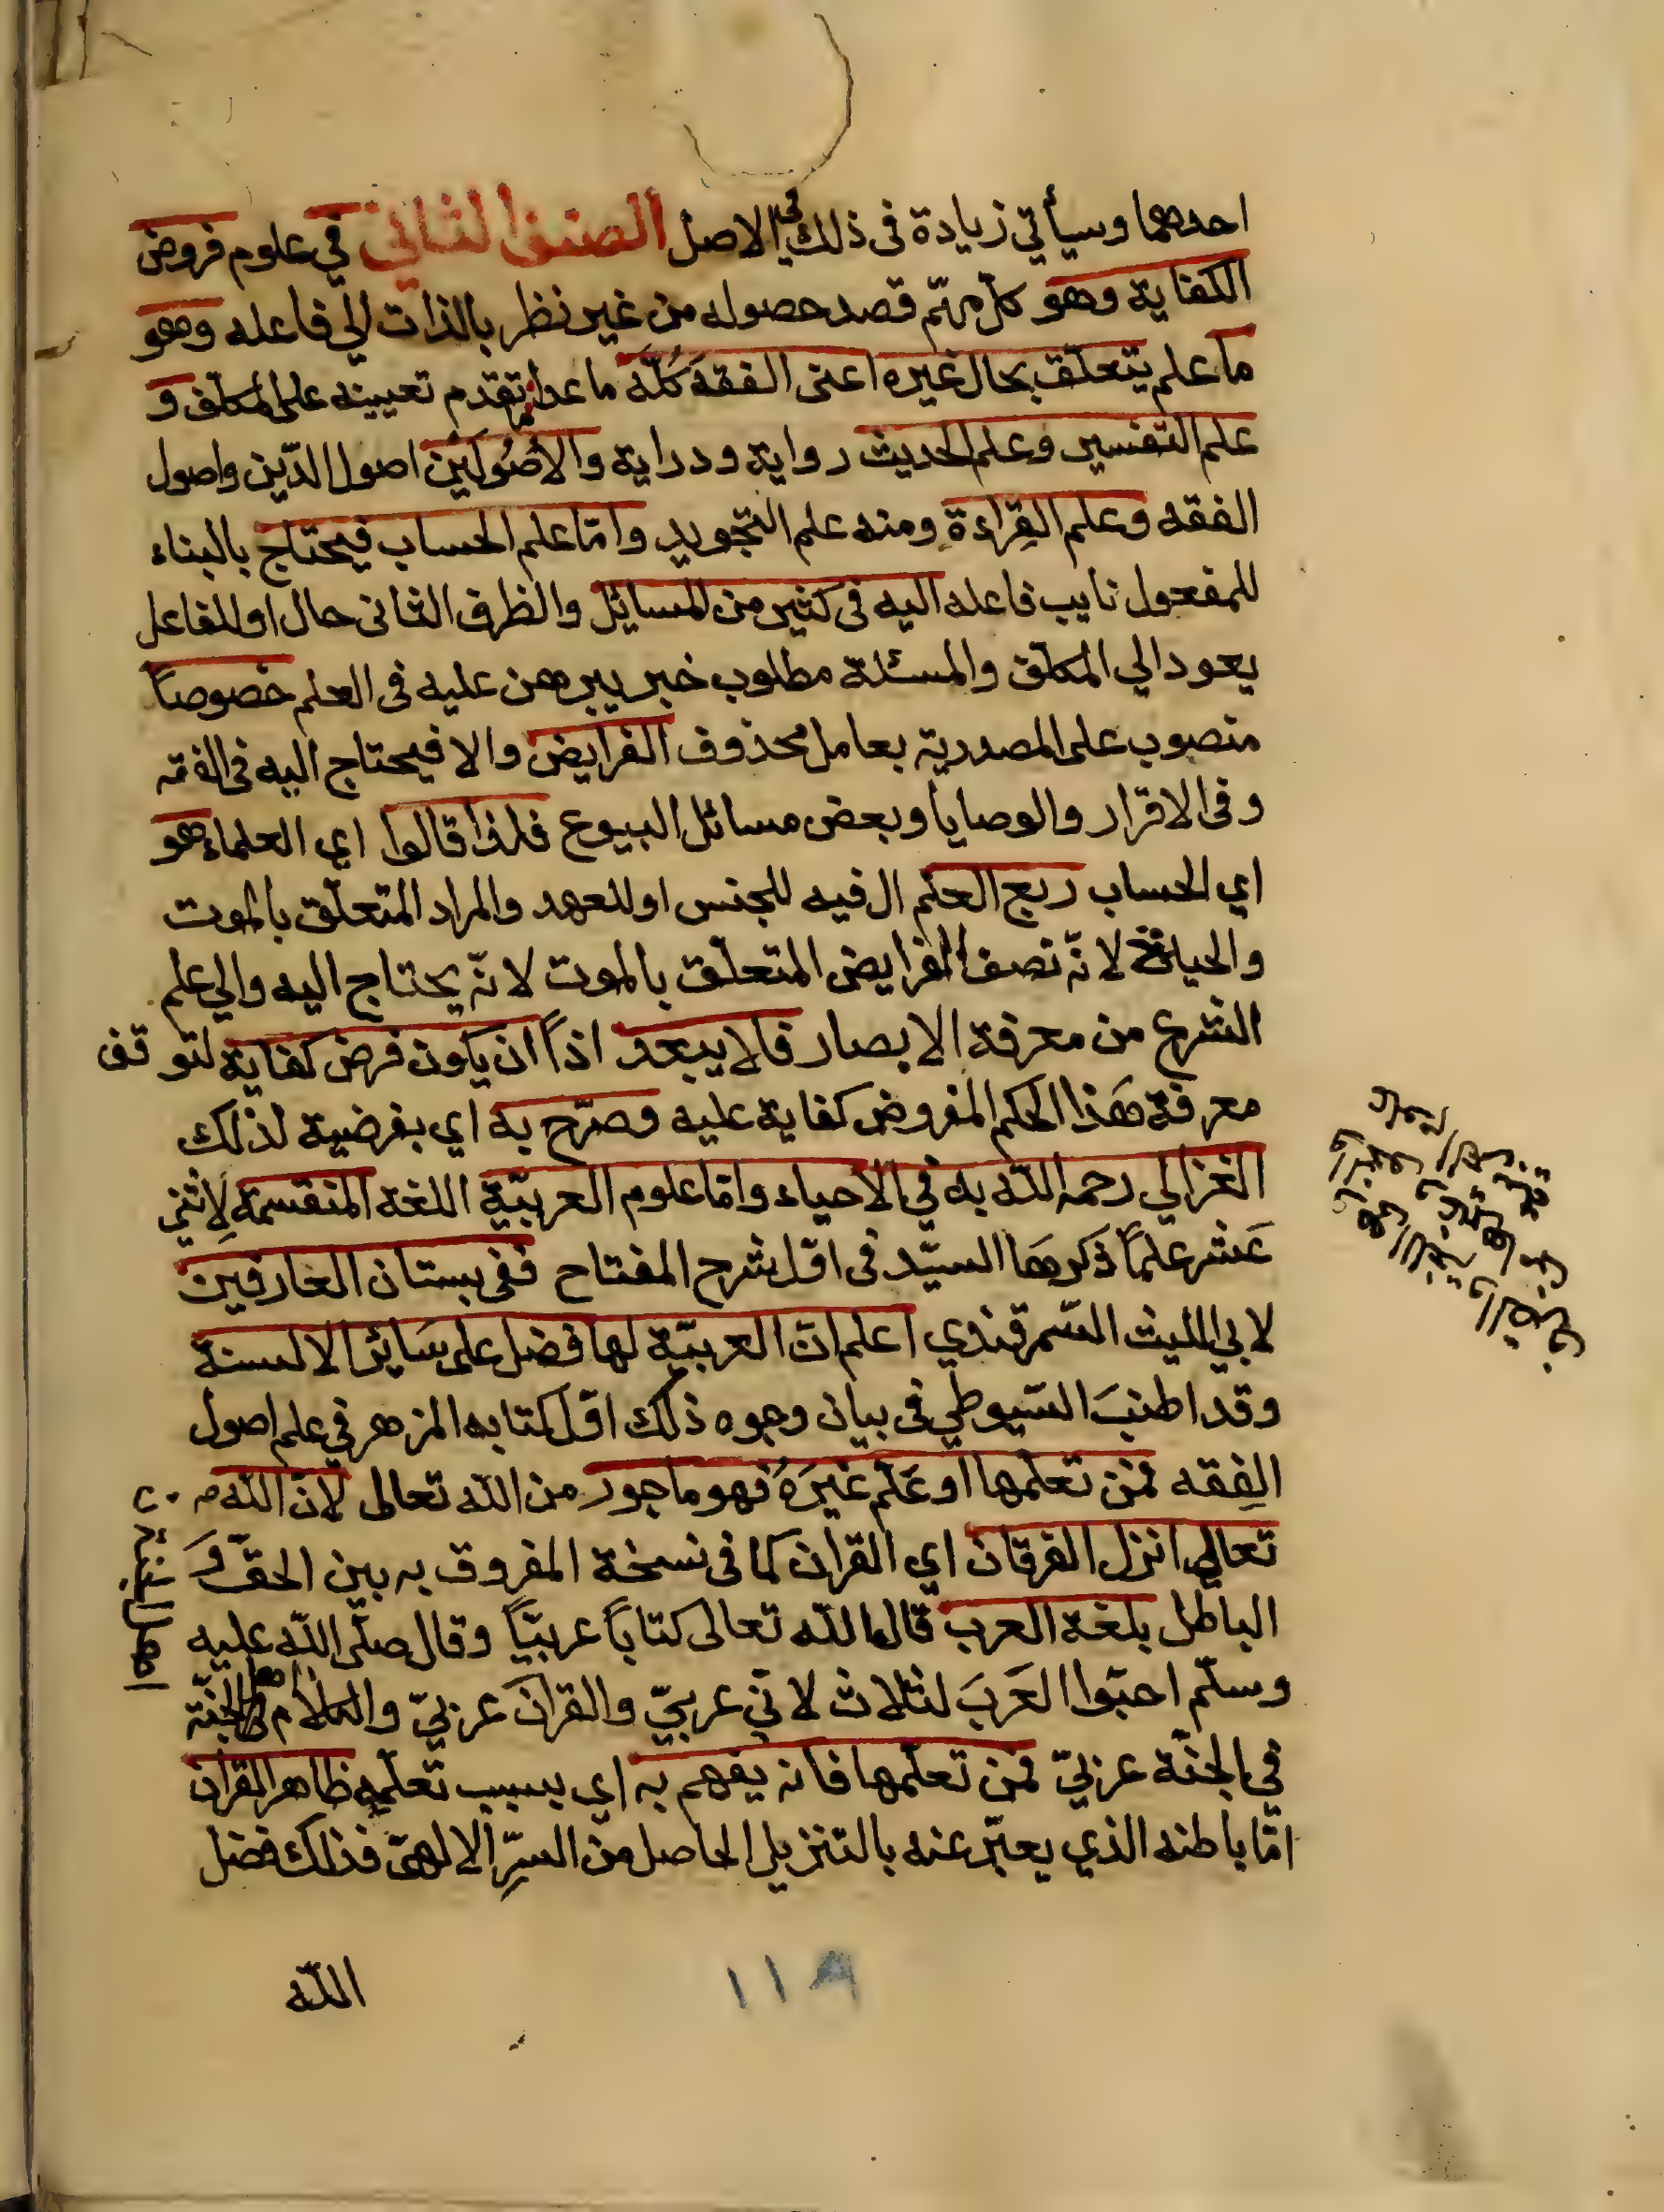 احدهما وسيأتي زيادة فى ذلك في الاصل الصنف الثاني في علوم فروض
الكفاية وهو كل مهتم قصد حصوله من غير نظر بالذات الي فاعله وهو
ما علم يتعلّق بحال غيره اعنى الفقه كُلّه ما عدا ما تقدم تعيينه على المكلف و
علم التفسير وعلم الحديث رواية ودراية والأصُولَين اصول الدّين واصول
الفقه وعلم القِراءة ومنه علم التجويد وامّا علم الحساب فيحتاج بالبناء
للمفعول نايب فاعله اليه فى كثير من المسائل والظرف الثانى حال او للفاعل
يعود الي المكلف والمسئلة مطلوب خبر يبرهن عليه فى العلم خصوصاً
منصوب على المصدرية بعامل محذوف الفرايض والا فيحتاج اليه فى الفقه
وفى الاقرار والوصايا وبعض مسائل البيوع فلذا قالوا اي العلماء هو
اي الحساب ربع العلم ال فيه للجنس او للعهد والمراد المتعلّق بالموت
والحياة لانّه نصف الفرايض المتعلّق بالموت لانّه يحتاج اليه والي علم
الشرع من معرفة الابصار فلا يبعد اذاً ان يكون فرض كفاية لتوقف
معرفة هَذا الحكم المفروض كفاية عليه وصرّح به اي بفرضية لذلك
الغزالي رحمه الله به في الاحياء وامّا علوم العربيّة اللغة المنقسمة لاِثنى
عَشر علماً ذكرهَا السيّد فى اوّل شرح المفتاح ففى بستان العارفين
لابي الليث السّمرقندي اعلم انّ العربيّة لها فضل على سَائر الالسنة
وقد اطنبَ السّيوطي فى بيان وجوه ذلك اوّل كتابه المزهر في علم اصول
الفِقه فمن تعلّمها او عَلّم غيرَهُ فهو ماجور من الله تعالى لانّ الله
تعالي انزل الفرقان اي القران كما فى نسخة المفروق به بين الحقّ وَ
الباطل بلغة العرب قال الله تعالى كتاباً عربيّاً وقال صلّى الله عليه
وسلّم احبّوا العَربَ لثلاث لاني عربيّ والقرانَ عربيّ والكلام
في الجنّة عربيّ فمن تعلّمها فانه يفهم به اي بسبب تعلّمهِ ظاهر القران
امّا باطنه الذي يعبّر عنه بالتنزيل الحاصل من السِّر الالهىّ فذلك فضل
الله
١١٨